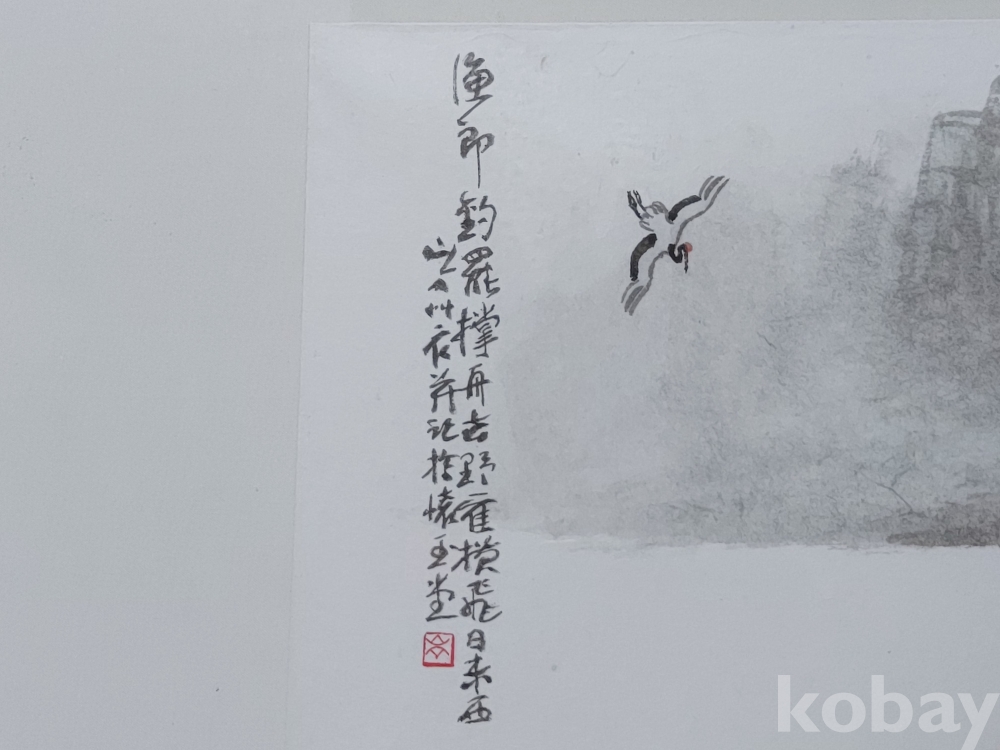 漁郎釣罷撑舟去野隺橫飛日未西
艸衣并記於懷玉堂
kobay